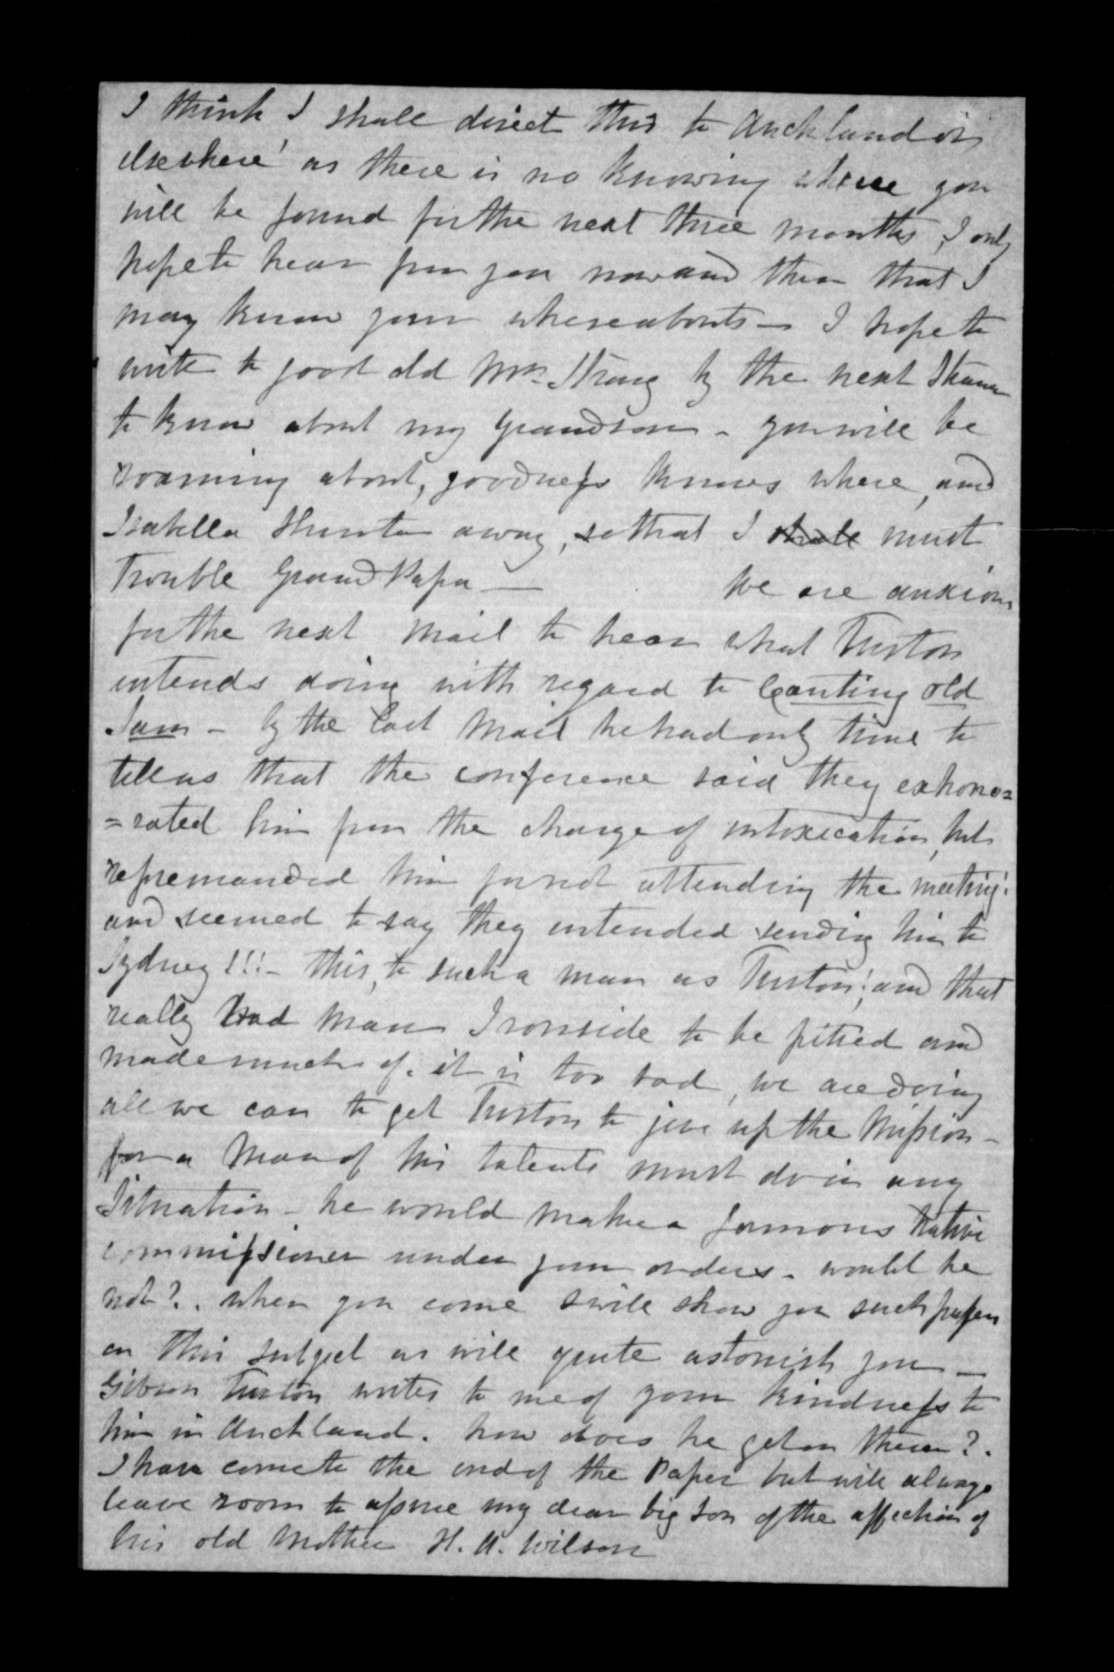 I think I shall direct this to Auckland or
elsewhere' as there is no knowing where you
will be found for the next three months, I only
hope to hear from you now and then that I
may know your whereabouts — I hope to
write to good old Mrs. Strang by the next Steamer
to know about my Grandson - you will be
roaming about, goodness knows where, and
Isabella Hunter away, so that I shall must
trouble GrandPapa — We are anxious
for the next mail to hear what Turton
intends doing with regard to Canting old
Sam - by the last Mail he had only time to
tell us that the conference said they exhone=
=rated him from the charge of intoxication, but
repremanded him for not attending the meeting!
and seemed to say they intended sending him to
Sydney!!! - this, to such a man as Turton! and that
really bad man Ironside to be pitied and
made much of. it is too bad, we are doing
all we can to get Turton to give up the Mission -
for a Man of his talents must do in any
Situation - he would make a famous Native
commissioner under your orders - would he
not?. when you come I will show you such papers
on this subject as will quite astonish you —
Gibson Turton writes to me of your kindness to
him in Auckland. how does he get on there?.
I have come to the end of the Paper but will always
leave room to assure my dear big Son of the affection of
his old Mother H. A. Wilson